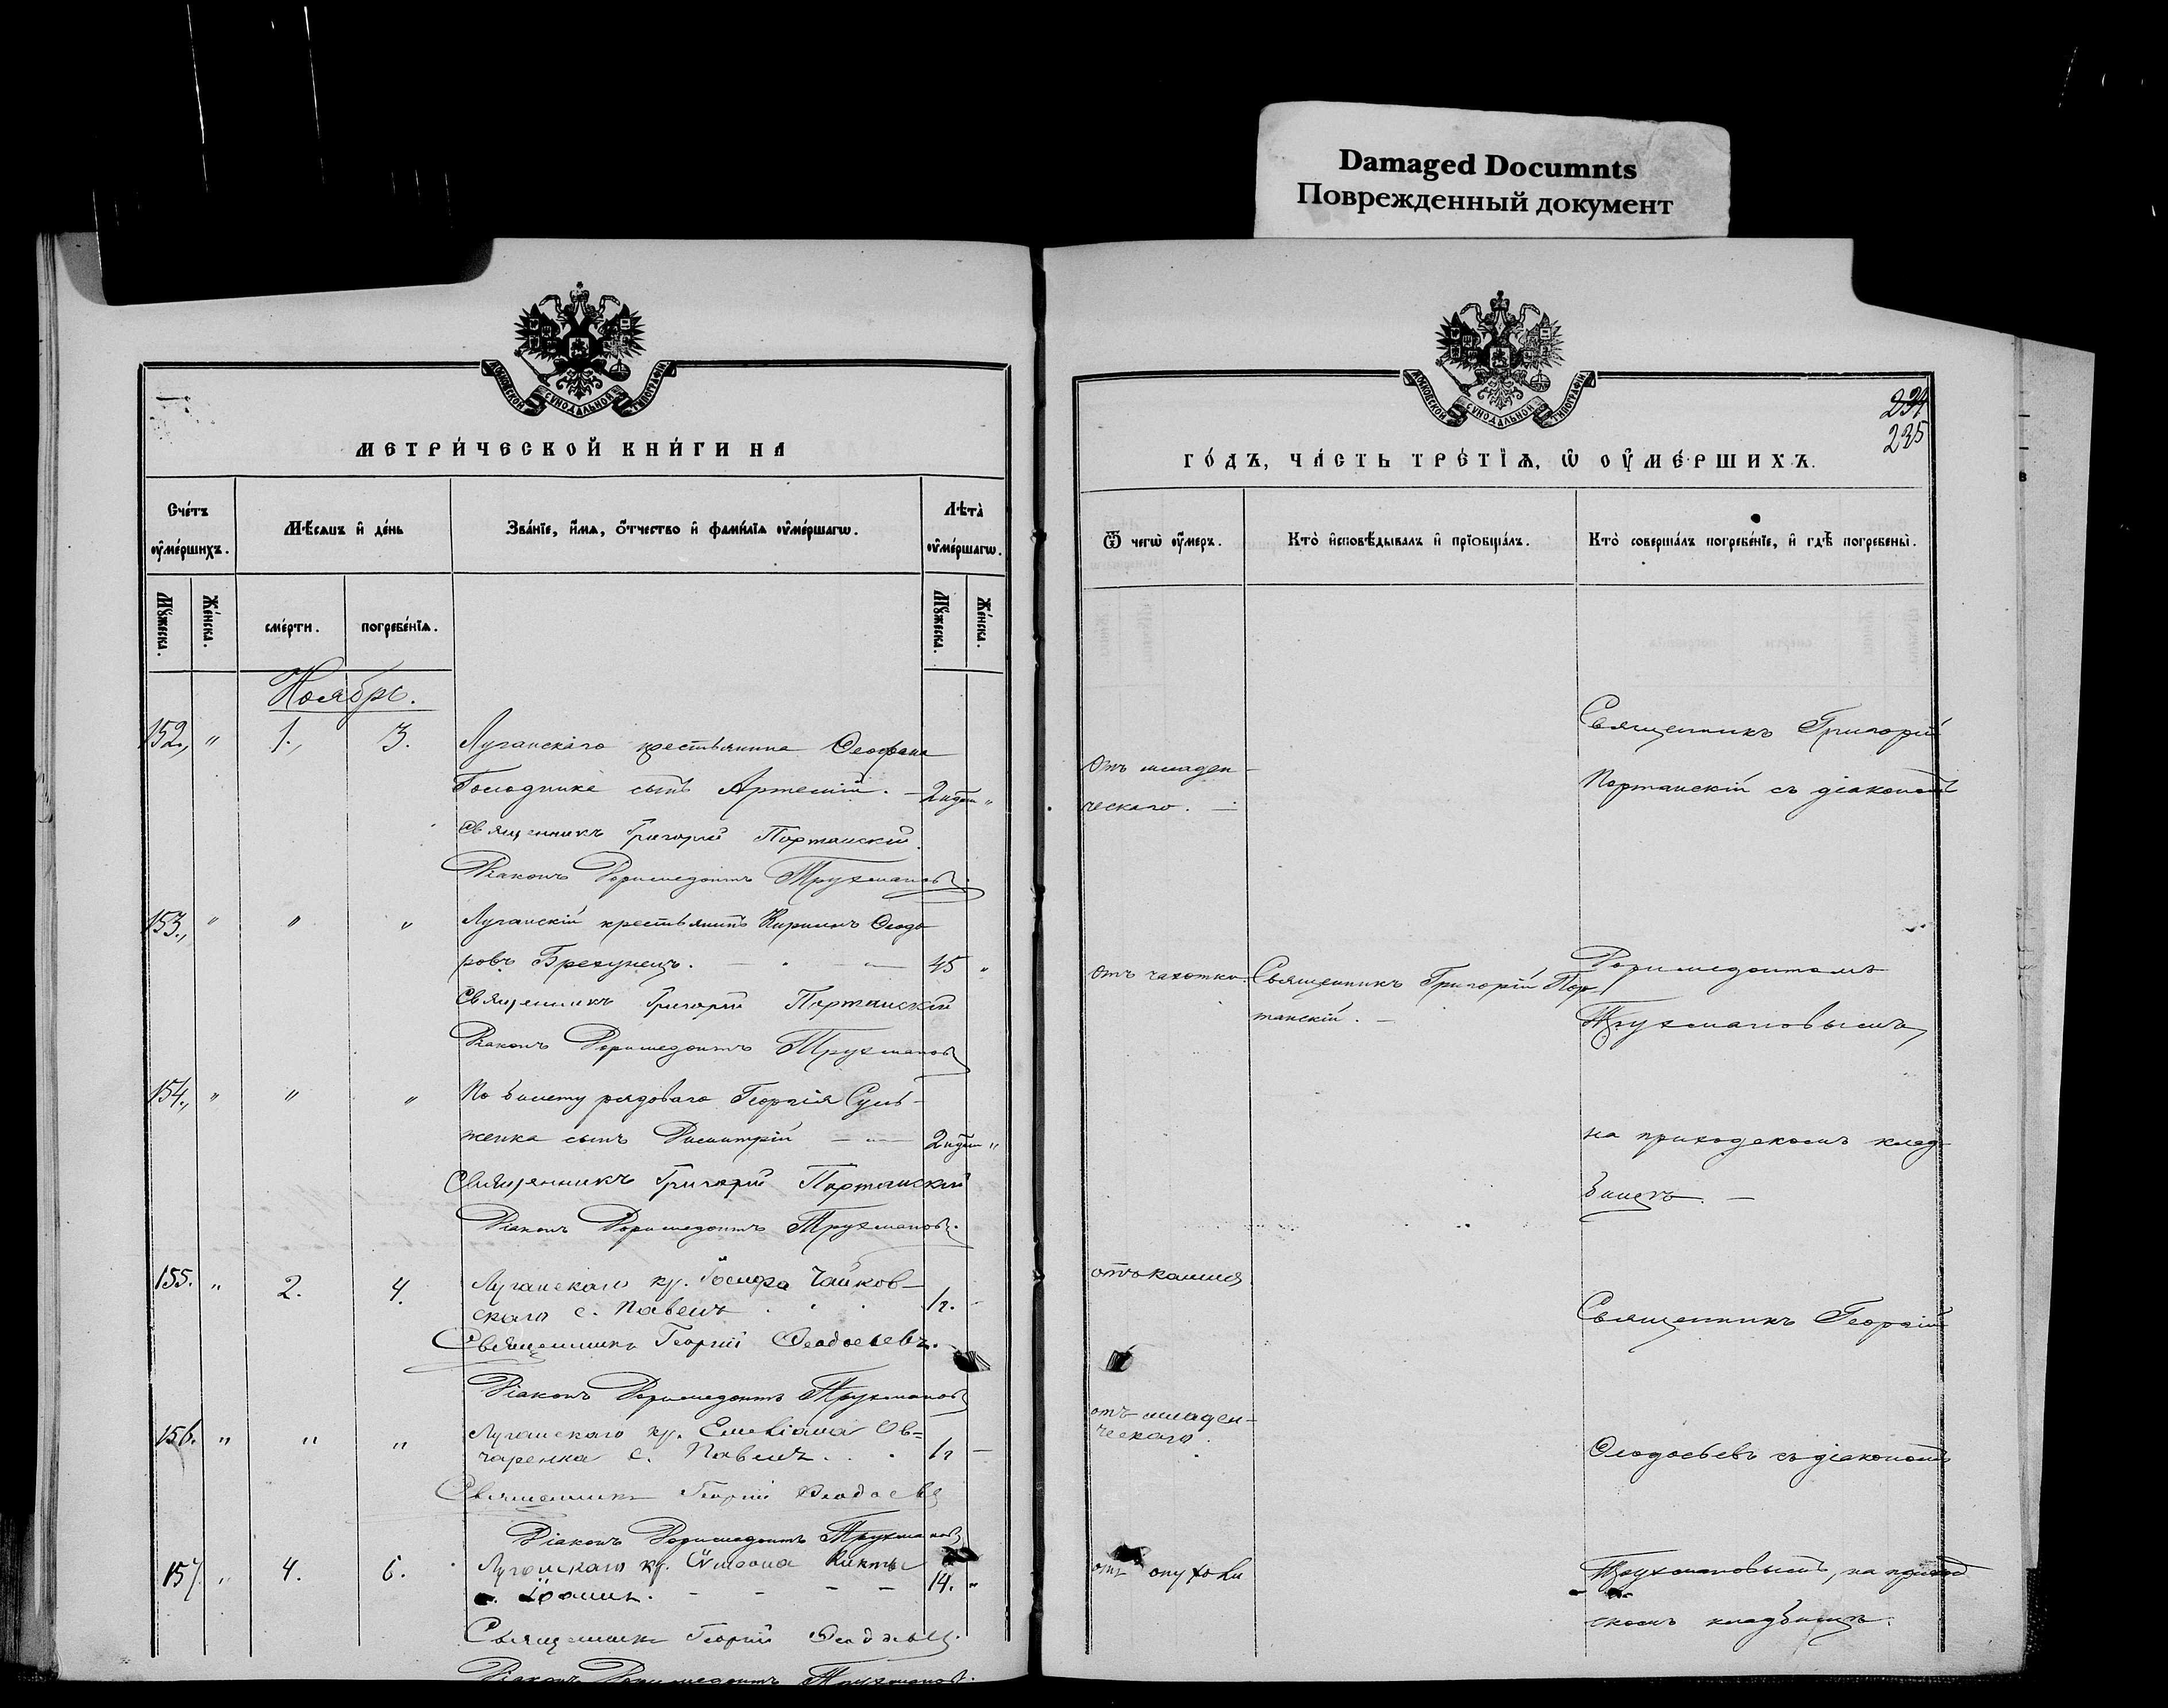 Damaged Documnts
Поврежденный документ
МОСКОВСКОЙ СѴНОДАЛЬНОЙ ТИПОГРАФІИ
МЕТРИ́ЧЕСКОЙ КНИ́ГИ НА
Сче́тъ ᲂу҆ме́ршихъ.
Мѣ́сяцъ и҆ де́нь
Зва́нїе, и҆́мѧ, ѻ҆́тчество и҆ фами́лїѧ ᲂу҆ме́ршагѡ.
Лѣ́та ᲂу҆ме́ршагѡ.
Мꙋ́жеска.
Же́нска.
сме́рти.
погребе́нїѧ.
Мꙋ́жеска.
Же́нска.
Ноябрь.
152., " 1., 3. Луганскаго крестьянина Ѳеофана
сынъ Артемій. — 2 "
Священникъ Григорій Портанскій.
Діаконъ Доримедонтъ Трухмановъ.
153., " " " Луганскій крестьянинъ Кириллъ Ѳеодо
ровъ Брехунецъ. — 45 "
Священникъ Григорій Портанскій
Діаконъ Доримедонтъ Трухмановъ
154., " " " По билету рядоваго Георгія Суль-
женка сынъ Димитрій — 2 "
Священникъ Григорій Портанскій
Діаконъ Доримедонтъ Трухмановъ.
155. " 2. 4. Луганскаго кр. Іосифа Чайков-
скаго с. Павелъ . . . 1 г. -
Священникъ Георгій Ѳеодосьевъ.
Діаконъ Доримедонтъ Трухмановъ
156. " " " Луганскаго кр. Емиліана Ов=
чаренка с. Павелъ. . . 1 г —
Священникъ Георгій Ѳеодосьевъ
Діаконъ Доримедонтъ Трухмановъ
157. " 4. 6. Луганскаго кр. Кикты
с. Іоаннъ. - - - - 14. "
Священникъ Георгій Ѳеодосьевъ.
Діаконъ Доримедонтъ Трухмановъ.
МОСКОВСКОЙ СѴНОДАЛЬНОЙ ТИПОГРАФІИ
234
235
ГО́ДЪ, ЧА́СТЬ ТРЕ́ТЇѦ, Ѽ ОУ҆МЕ́РШИХЪ.
Ѿ чегѡ̀ ᲂу҆́меръ.
Кто̀ и҆сповѣ́дывалъ и҆ прїѡбща́лъ.
Кто̀ соверша́лъ погребе́нїе, и҆ гдѣ̀ погребены̀.
Священникъ Григорій
Отъ младен-
ческаго. —
Портанскій съ діакономъ
Доримедонтомъ
отъ чахотки. Священникъ Григорій Пор
танскій. —
Трухмановымъ,
на приходскомъ клад-
бищѣ. —
отъ кашля
Священникъ Георгій
отъ младен-
ческаго.
Ѳеодосьевъ съ діакономъ
отъ опухоли
Трухмановымъ, на приход
скомъ кладбищѣ.